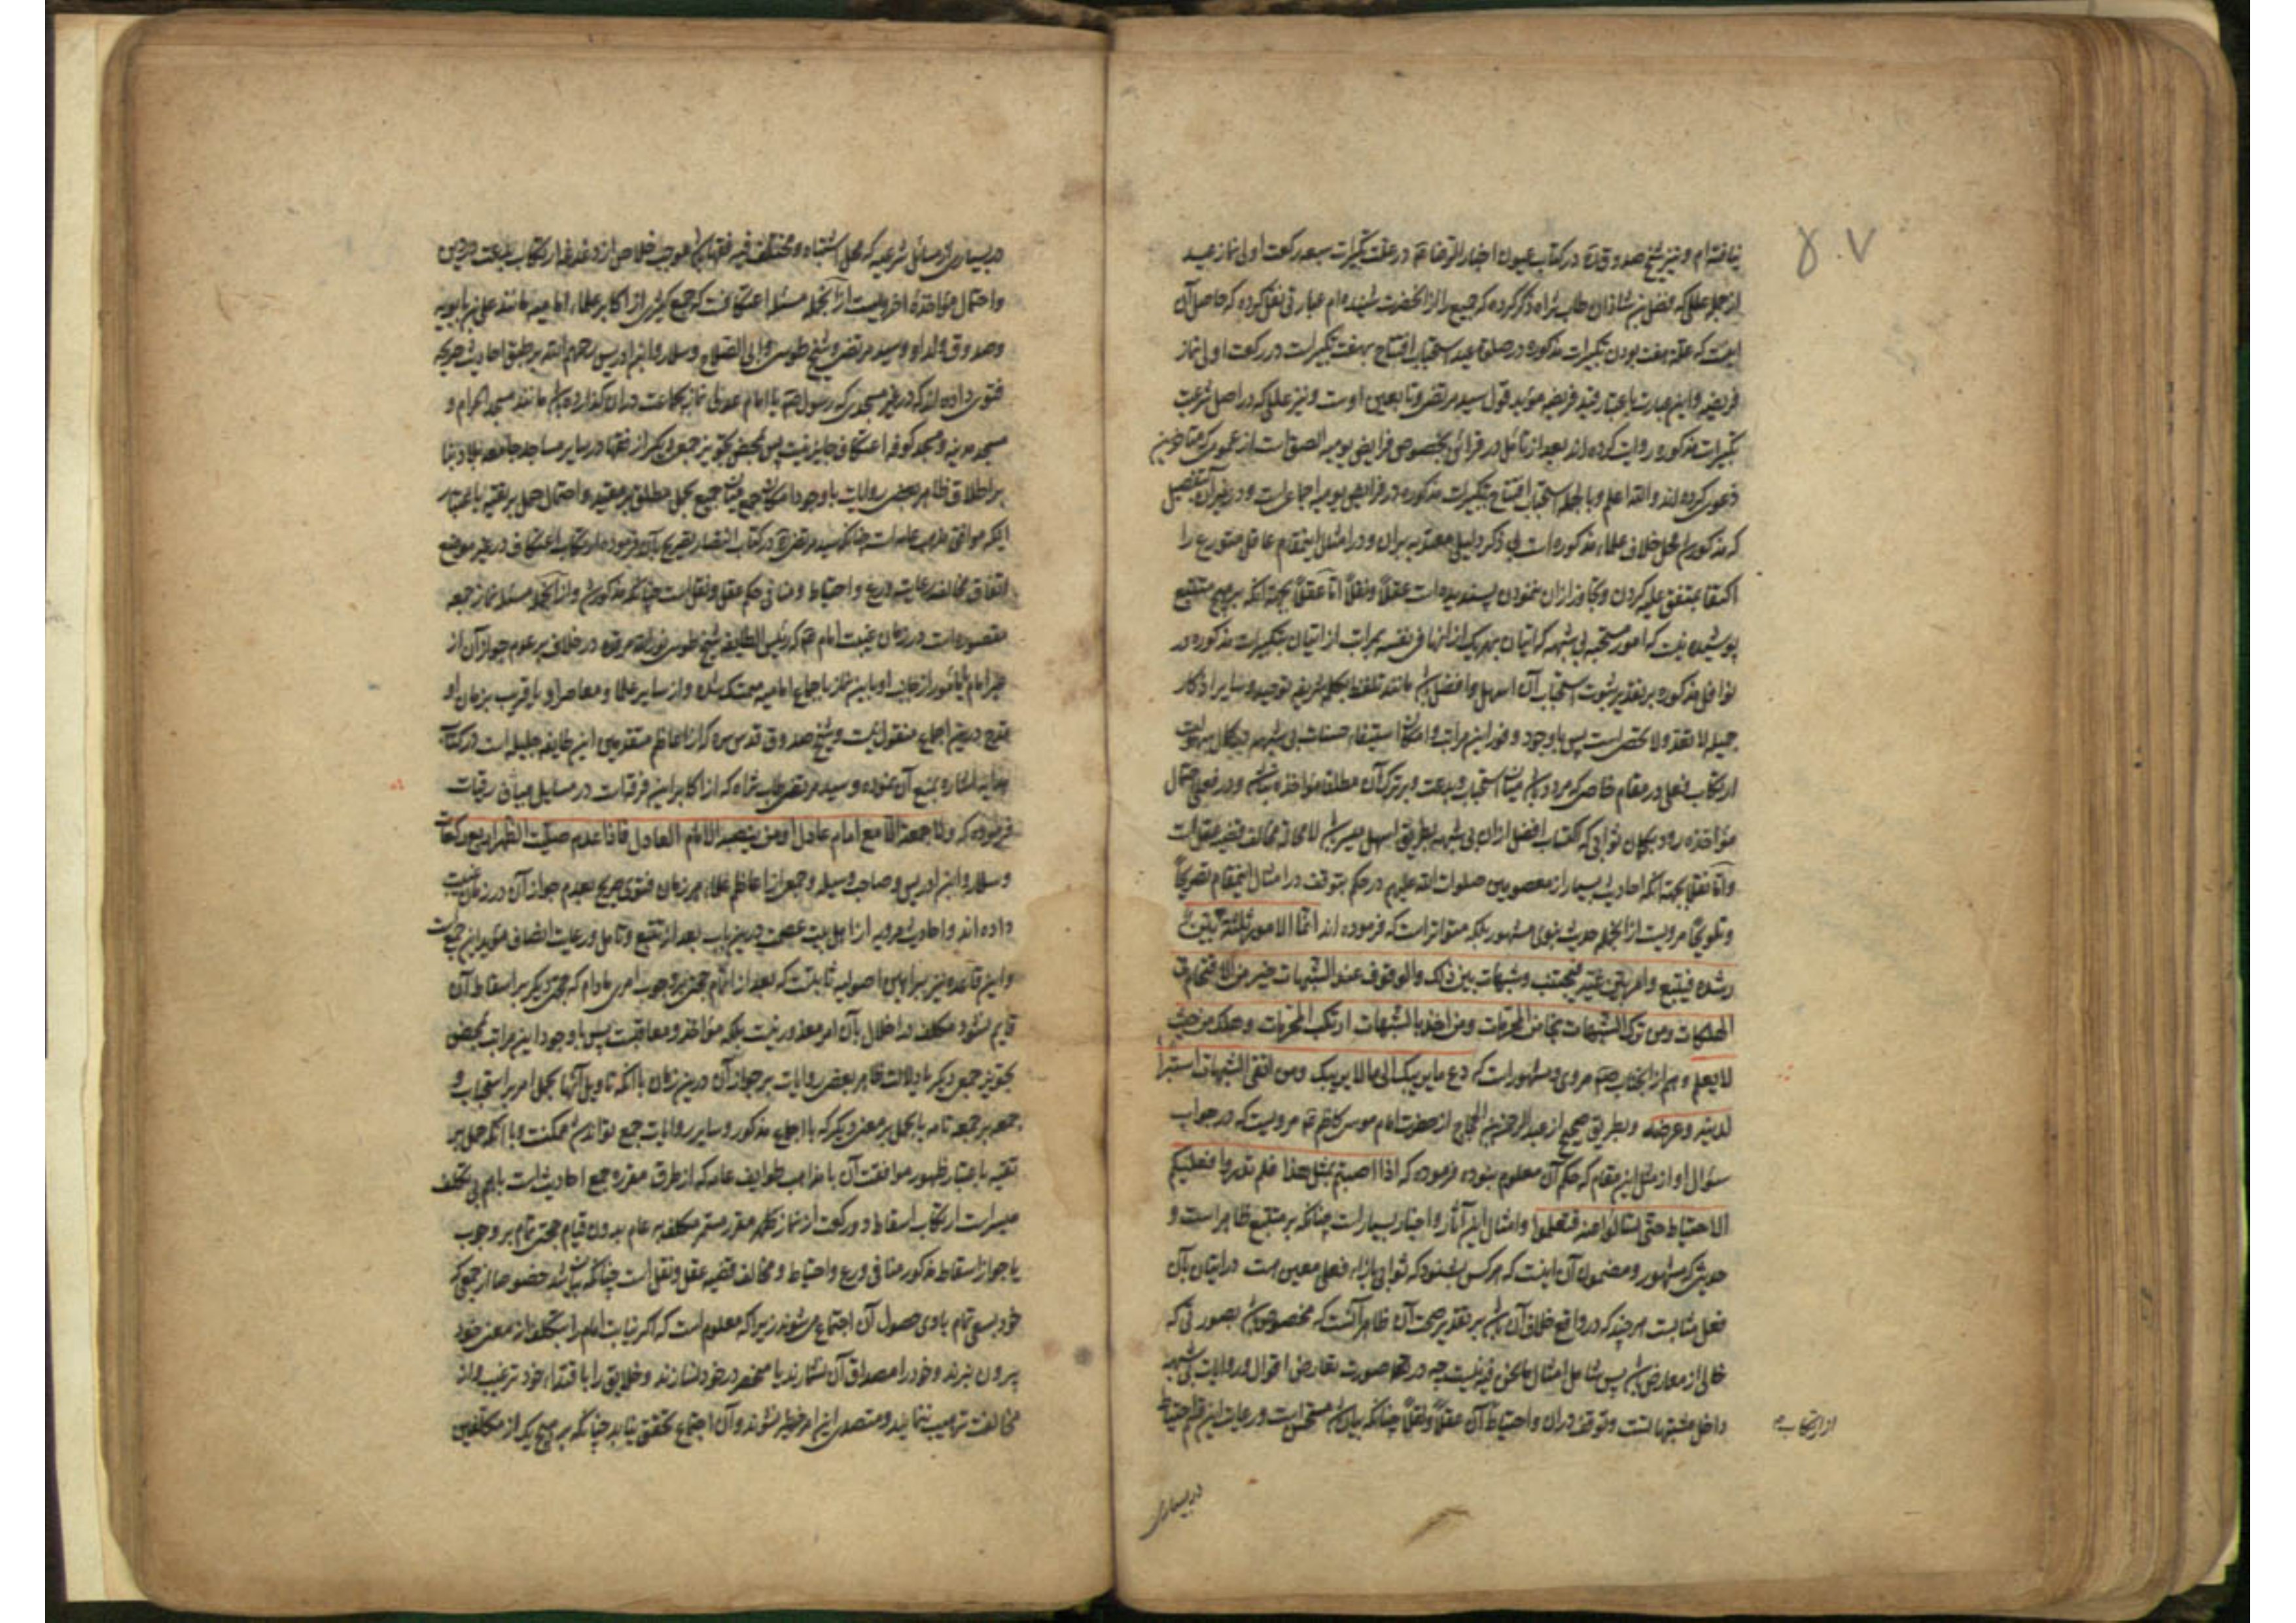 ۵۰۷
نیافته‌ام و نیز شیخ صدوق ره در کتاب عیون اخبار الرضا در علت تکبیرات سبعه رکعت اولی نماز عید
از جمله عللی که فضل بن شاذان طاب ثراه ذکر کرده که جمیع را از آنحضرت شنیده‌ام عبارتی نقل کرده که حاصل آن
اینست که علة هفت بودن تکبیرات مذکوره در صلوة عید استحباب افتتاح بهفت تکبیرات در رکعت اول نماز
فریضه و این عبارت باعتبار قید فریضه مؤید قول سید مرتضی و تابعین اوست و نیز عللی که در اصل شرعیت
تکبیرات مذکوره روایت کرده‌اند بعد از تامل در قرائن بخصوص فرایض یومیه الصق است از عمومی که متاخرین
دعوی کرده‌اند والله اعلم وبالجمله استحباب افتتاح بتکبیرات مذکوره در فرایض یومیه اجماعی است و در غیر آن بتفصیل
که مذکور شد محل خلاف علماء مذکوره است بی ذکر دلیلی معتد به بران و در امثال اینمقام عاقل متورع را
اکتفا بمتفق علیه کردن و تجاوز از ان ننمودن پسندیده است عقلاً ونقلاً اما عقلاً بجهة آنکه بر هیچ متتبع
پوشیده نیست که امور مستحبه بی شبهه که اتیان بهر یک از انها فی نفسه بمراتب از اتیان بتکبیرات مذکوره در
نوافل مذکوره بر تقدیر ثبوت استحباب آن اسهل و افضل باشد مانند تلفظ بکلمه شریفه توحید و سایر اذکار
جمیله لا تعد ولا تحصی است پس با وجود وفور این مراتب و امکان استیفاء حسنات بی شبهه بهر کمال سهولت
ارتکاب فعلی در مقام خاص که مردد باشد میان استحباب و بدعت و بر ترک آن مطلقا مؤاخذه نباشد و در فعلش احتمال
مؤاخذه رود بگمان ثوابی که اکتساب افضل از ان بی شبهه بطریق اسهل میسر باشد لا محاله مخالف قضیه عقلست
واما نقلا بجهة آنکه احادیث بسیار از معصومین صلوات الله علیهم در حکم بتوقف در امثال اینمقام تصریحاً
و تلویحاً مرویست از آنجمله حدیث نبوی مشهور بلکه متواتر است که فرموده‌اند انما الامور ثلثة امر بین
رشده فیتبع وامر بین غیه فیجتنب وشبهات بین ذلک والوقوف عند الشبهات خیر من الاقتحام فی
الهلکات ومن ترک الشبهات نجا من المحرمات ومن اخذ بالشبهات ارتکب المحرمات وهلک من حیث
لا یعلم و هم از انجناب مروی و مشهور است که دع ما یریبک الی ما لا یریبک ومن اتقی الشبهات استبرأ
لدینه وعرضه و بطریق صحیح از عبد الرحمن بن الحجاج از حضرت امام موسی کاظم مرویست که در جواب
سؤال او از مثل این مقام که حکم آن معلوم نبوده فرموده که اذا اصبتم بمثل هذا فلم تدروا فعلیکم
الاحتیاط حتی تسالوا عنه فتعلموا وامثال این آثار و اخبار بسیار است چنانکه بر متتبع ظاهر است و
حدیثی که مشهور و مضمون آن اینست که هر کس بشنود که ثوابی بازاء فعلی معین هست در اتیان بآن
فعل مثابست هر چند که در واقع خلاف آن باشد بر تقدیر صحت آن ظاهر آنست که مخصوص باشد بصورتی که
خالی از معارض باشد پس شامل امثال ما نحن فیه نیست چه در صورت تعارض اقوال و روایات بی شبهه
داخل مشتبهاتست و توقف دران و احتیاط آن عقلاً ونقلاً چنانکه بیان شد مستحسن است و رعایت این قسم احتیاط
از ارتکاب
در بسیاری
در بسیاری از مسائل شرعیه که محل اشتباه و مختلف فیه فقها باشد موجب خلاص از دغدغه ارتکاب بدعت در دین
و احتمال مؤاخذه اخرویست از آنجمله مسئله اعتکافست که جمع کثیری از اکابر علماء امامیه مانند علی بن بابویه
و صدوق ولد او و سید مرتضی و شیخ طوسی و ابی الصلاح و سلار و ابن ادریس رحمهم الله بر طبق احادیث صریحه
فتوی داده‌اند که در غیر مسجدی که رسول یا امام عدلی نماز بجماعت دران گذارده باشد مانند مسجد الحرام و
مسجد مدینه و مسجد کوفه اعتکاف جایز نیست پس بمحض تجویز جمعی دیگر از فقها در سایر مساجد جامعه بلاد بنا
بر اطلاق ظاهر بعضی روایات با وجود امکان جمع میان جمیع بحمل مطلق بر مقید و احتمال حمل بر تقیه باعتبار
اینکه موافق مذهب عامه است چنانکه سید مرتضی در کتاب انتصار تصریح بآن فرموده ارتکاب اعتکاف در غیر موضع
اتفاق مخالف رعایت ورع و احتیاط و منافی حکم عقل و نقل است چنانکه مذکور شد و از آنجمله مسئله نماز جمعه
مقصوره است در زمان غیبت امام که رئیس الطایفه شیخ طوسی نور الله مرقده در خلاف بر عدم جواز آن از
غیر امام یا مأمور از جانب او باین نماز باجماع امامیه متمسک شده و از سایر علماء معاصر او یا قریب بزمان او
قدح درین اجماع منقول نیست و شیخ صدوق قدس سره که از اعاظم متقدمین این طایفه جلیله است در کتاب
هدایه اشاره بمنع آن نموده و سید مرتضی طاب ثراه که از اکابر این فرقه است در مسایل میافارقیات
فرموده که ولا جمعة الا مع امام عادل او من ینصبه الامام العادل فاذا عدم صلیت الظهر اربع رکعات
و سلار و ابن ادریس و صاحب وسیله و جمعی از اعاظم علماء هر زمان فتوی صریح بعدم جواز آن در زمان غیبت
داده‌اند و احادیث مرویه از اهل بیت عصمت درین باب بعد از تتبع و تامل و رعایت انصاف مؤید این حجت است
و این قاعده نیز ببراهین اصولیه ثابتست که بعد از اتمام حجت بر وجوب امری مادام که حجتی دیگر بر اسقاط آن
قایم نشود مکلف در اخلال بآن امر معذور نیست بلکه مؤاخذ و معاقبت پس با وجود این مراتب بمحض
تجویز جمعی دیگر یا دلالت ظاهر بعضی روایات بر جواز آن درین زمان با آنکه تاویل آنها بحمل امر بر استحباب و
جمعه بر جمعه تامه یا بحمل بر معنی دیگر که با اجماع مذکور و سایر روایات جمع تواند شد ممکنست و با آنکه حمل بر
تقیه باعتبار ظهور موافقت آن با مذاهب طوایف عامه که از طرق مقرره جمع احادیث است باهم بی تکلف
میسر است ارتکاب اسقاط دو رکعت از نماز ظهر مقرر مستمر مکلف به عام بدون قیام حجتی تمام بر وجوب
یا جواز اسقاط مذکور منافی ورع و احتیاط و مخالف قضیه عقل و نقل است چنانکه بیان شد خصوصا از جمعی که
خود بسعی تمام بادی حصول آن اجتماع میشوند زیرا که معلوم است که اگر نیابت امام را بتکلف از معنی خود
بیرون نبرند و خود را مصداق آن نشمارند یا منحصر در خود نسازند و خلایق را باقتداء خود ترغیب و از
مخالفت ترهیب ننمایند و متصدی این امر خطیر نشوند و آن اجتماع تحقق نیابد چنانکه بر هیچ یک از مکلفین